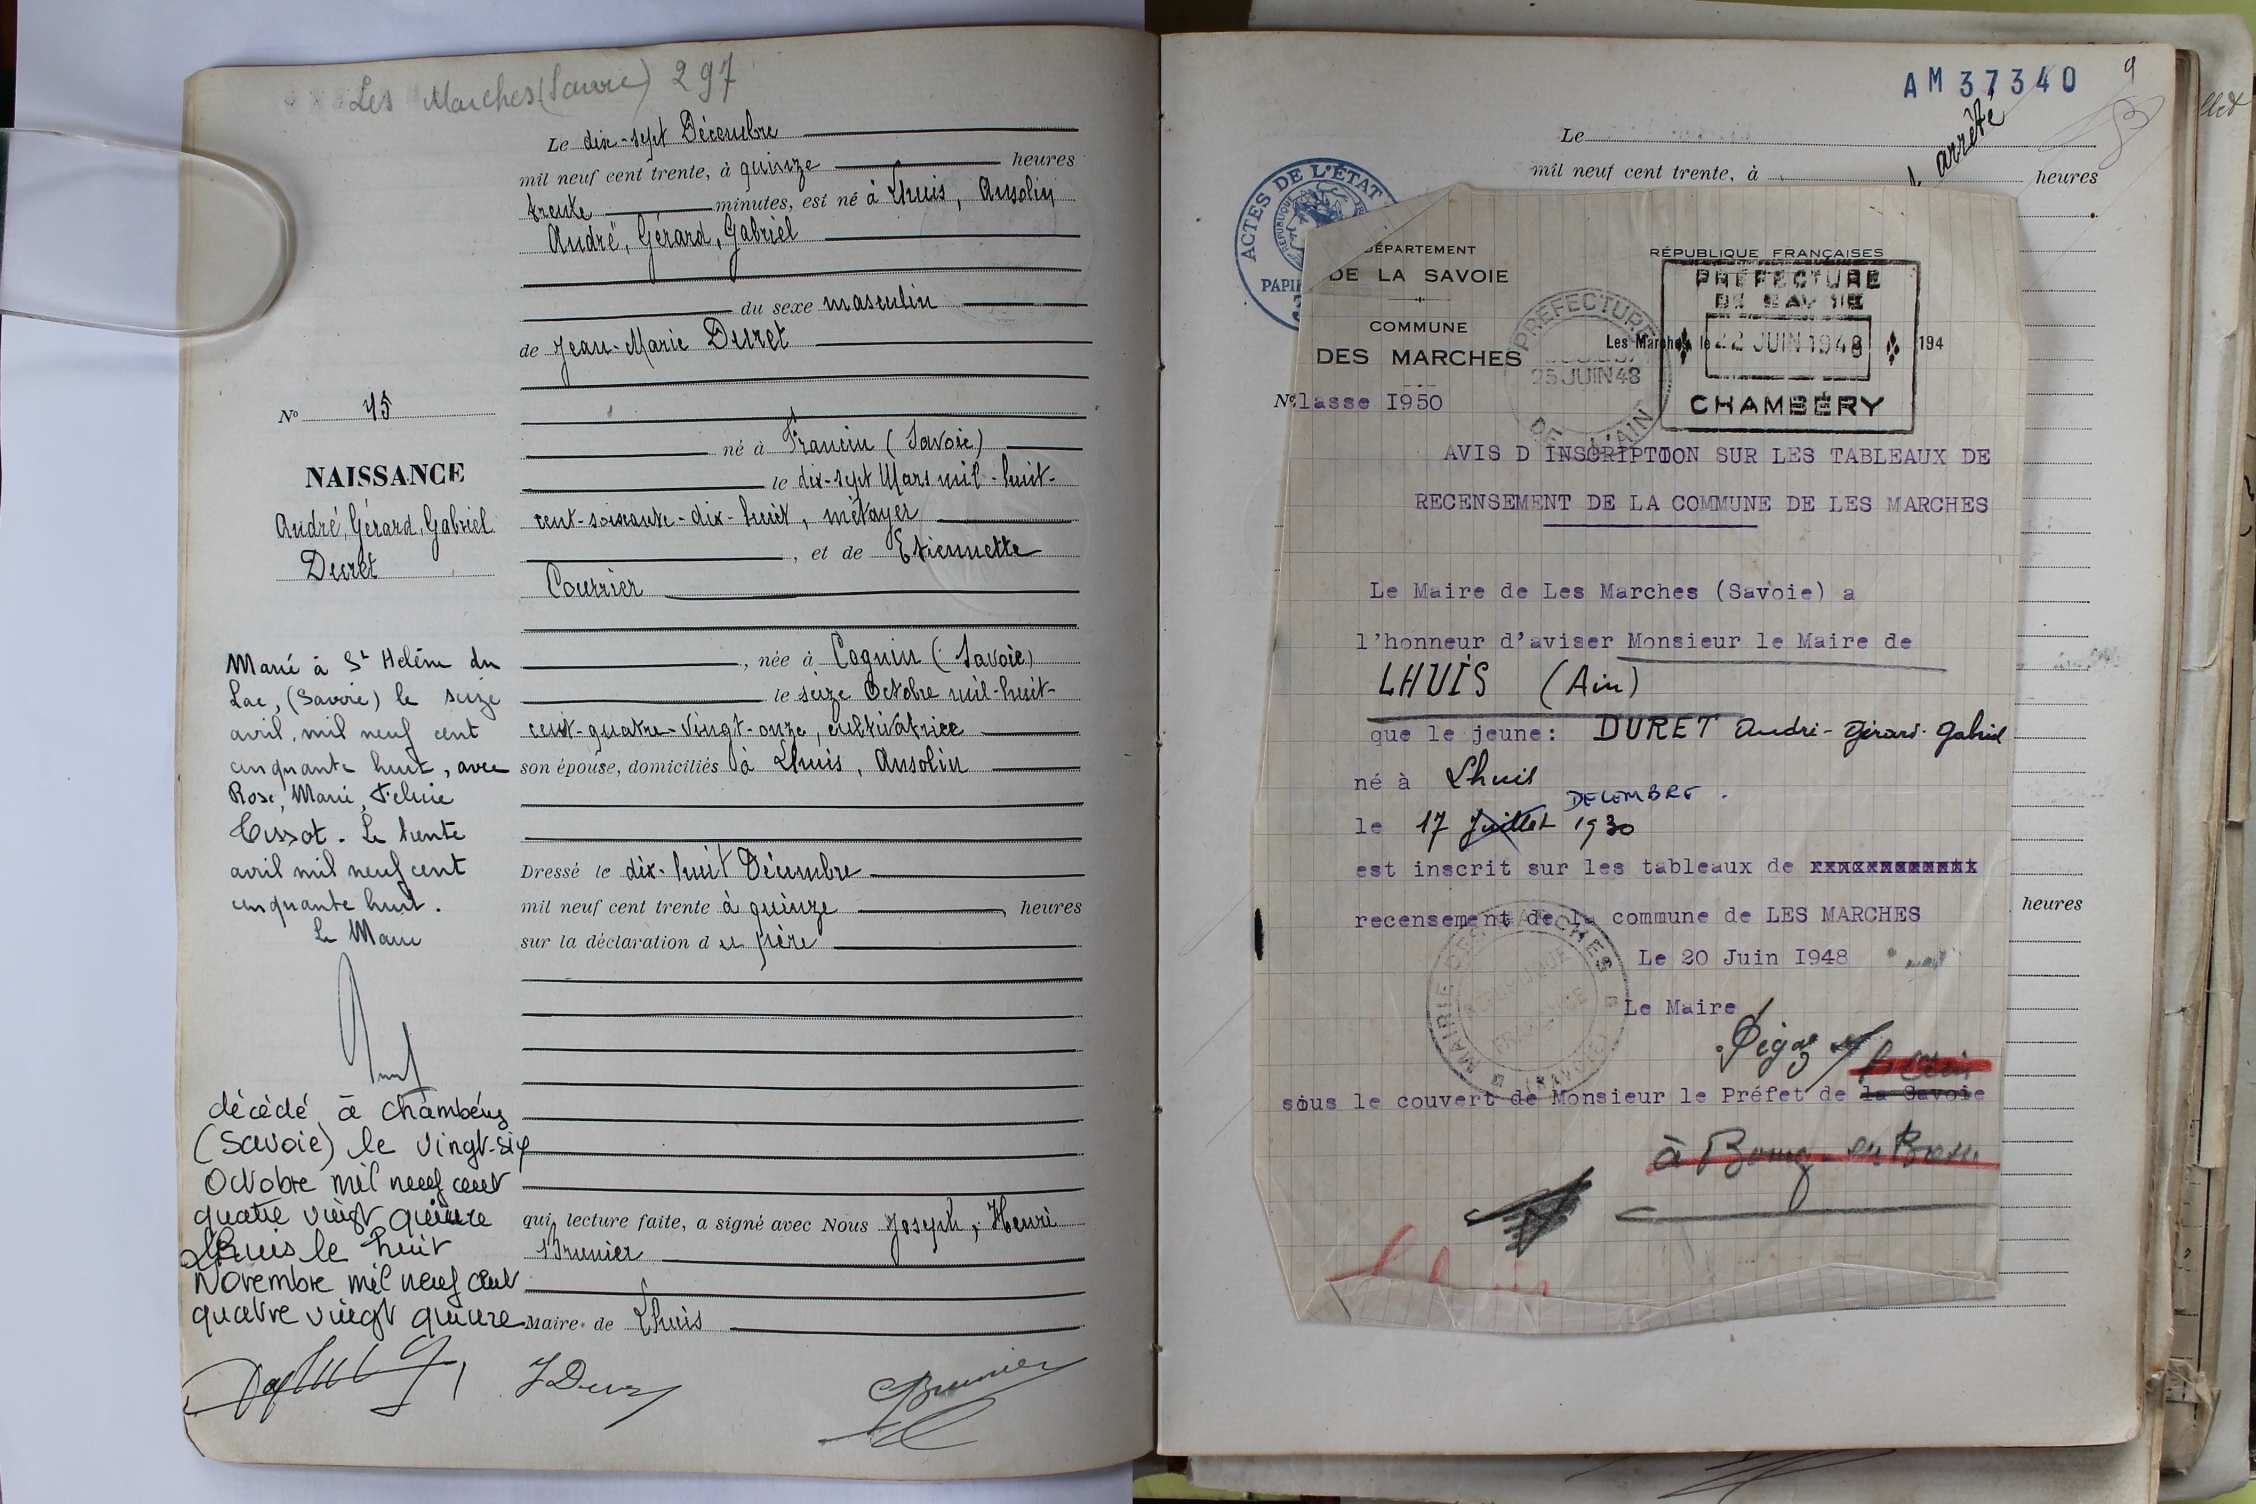 Les Marches (Savoie) 297
Le dix-sept Décembre
mil neuf cent trente, à quinze heures
trente minutes, est né à Lhuis, Ansolin
André, Gérard, Gabriel
du sexe masculin
de Jean-Marie Duret
né à Francin (Savoie)
le dix-sept Mars mil-huit-
cent-soixante-dix-huit, métayer
, et de Etiennette
Courrier
, née à Cognin (Savoie)
le seize Octobre mil-huit-
cent-quatre-vingt-onze, cultivatrice
son épouse, domiciliés à Lhuis, Ansolin
Dressé le dix-huit Décembre
mil neuf cent trente à quinze heures
sur la déclaration du père
qui, lecture faite, a signé avec Nous Joseph, Henri
Brunier
Maire de Lhuis
J Duret
Brunier
No 45
NAISSANCE
André, Gérard, Gabriel
Duret
Marié à St Hélène du
Lac, (Savoie) le seize
avril mil neuf cent
cinquante huit, avec
Rose, Marie, Félicie
Tissot. Le trente
avril mil neuf cent
cinquante huit.
Le Maire
décèdé à Chambéry
(Savoie) le vingt-six
Octobre mil neuf cent
quatre vingt quinze
Lhuis le huit
Novembre mil neuf cent
quatre vingt quinze
AM 37340
9
Le
mil neuf cent trente, à heures
arrêté
ACTES DE L'ÉTAT
PAPI
DÉPARTEMENT
DE LA SAVOIE
COMMUNE
DES MARCHES
RÉPUBLIQUE FRANÇAISES
PRÉFECTURE
DE SAVOIE
22 JUIN 1948
CHAMBÉRY
Les Marches le 194
PREFECTURE
25 JUIN 48
DE L'AIN
No
classe I950
AVIS D INSCRIPTION SUR LES TABLEAUX DE
RECENSEMENT DE LA COMMUNE DE LES MARCHES
Le Maire de Les Marches (Savoie) a
l'honneur d'aviser Monsieur le Maire de
LHUIS (Ain)
que le jeune: DURET André-Gérard-Gabriel
né à Lhuis
DECEMBRE.
le 17 Juillet 1930
est inscrit sur les tableaux de
recensement de la commune de LES MARCHES
Le 20 Juin I948
Le Maire
MAIRIE DES MARCHES
REPUBLIQUE
FRANÇAISE
(SAVOIE)
l'Ain
sous le couvert de Monsieur le Préfet de la Savoie
à Bourg-en-Bresse
heures